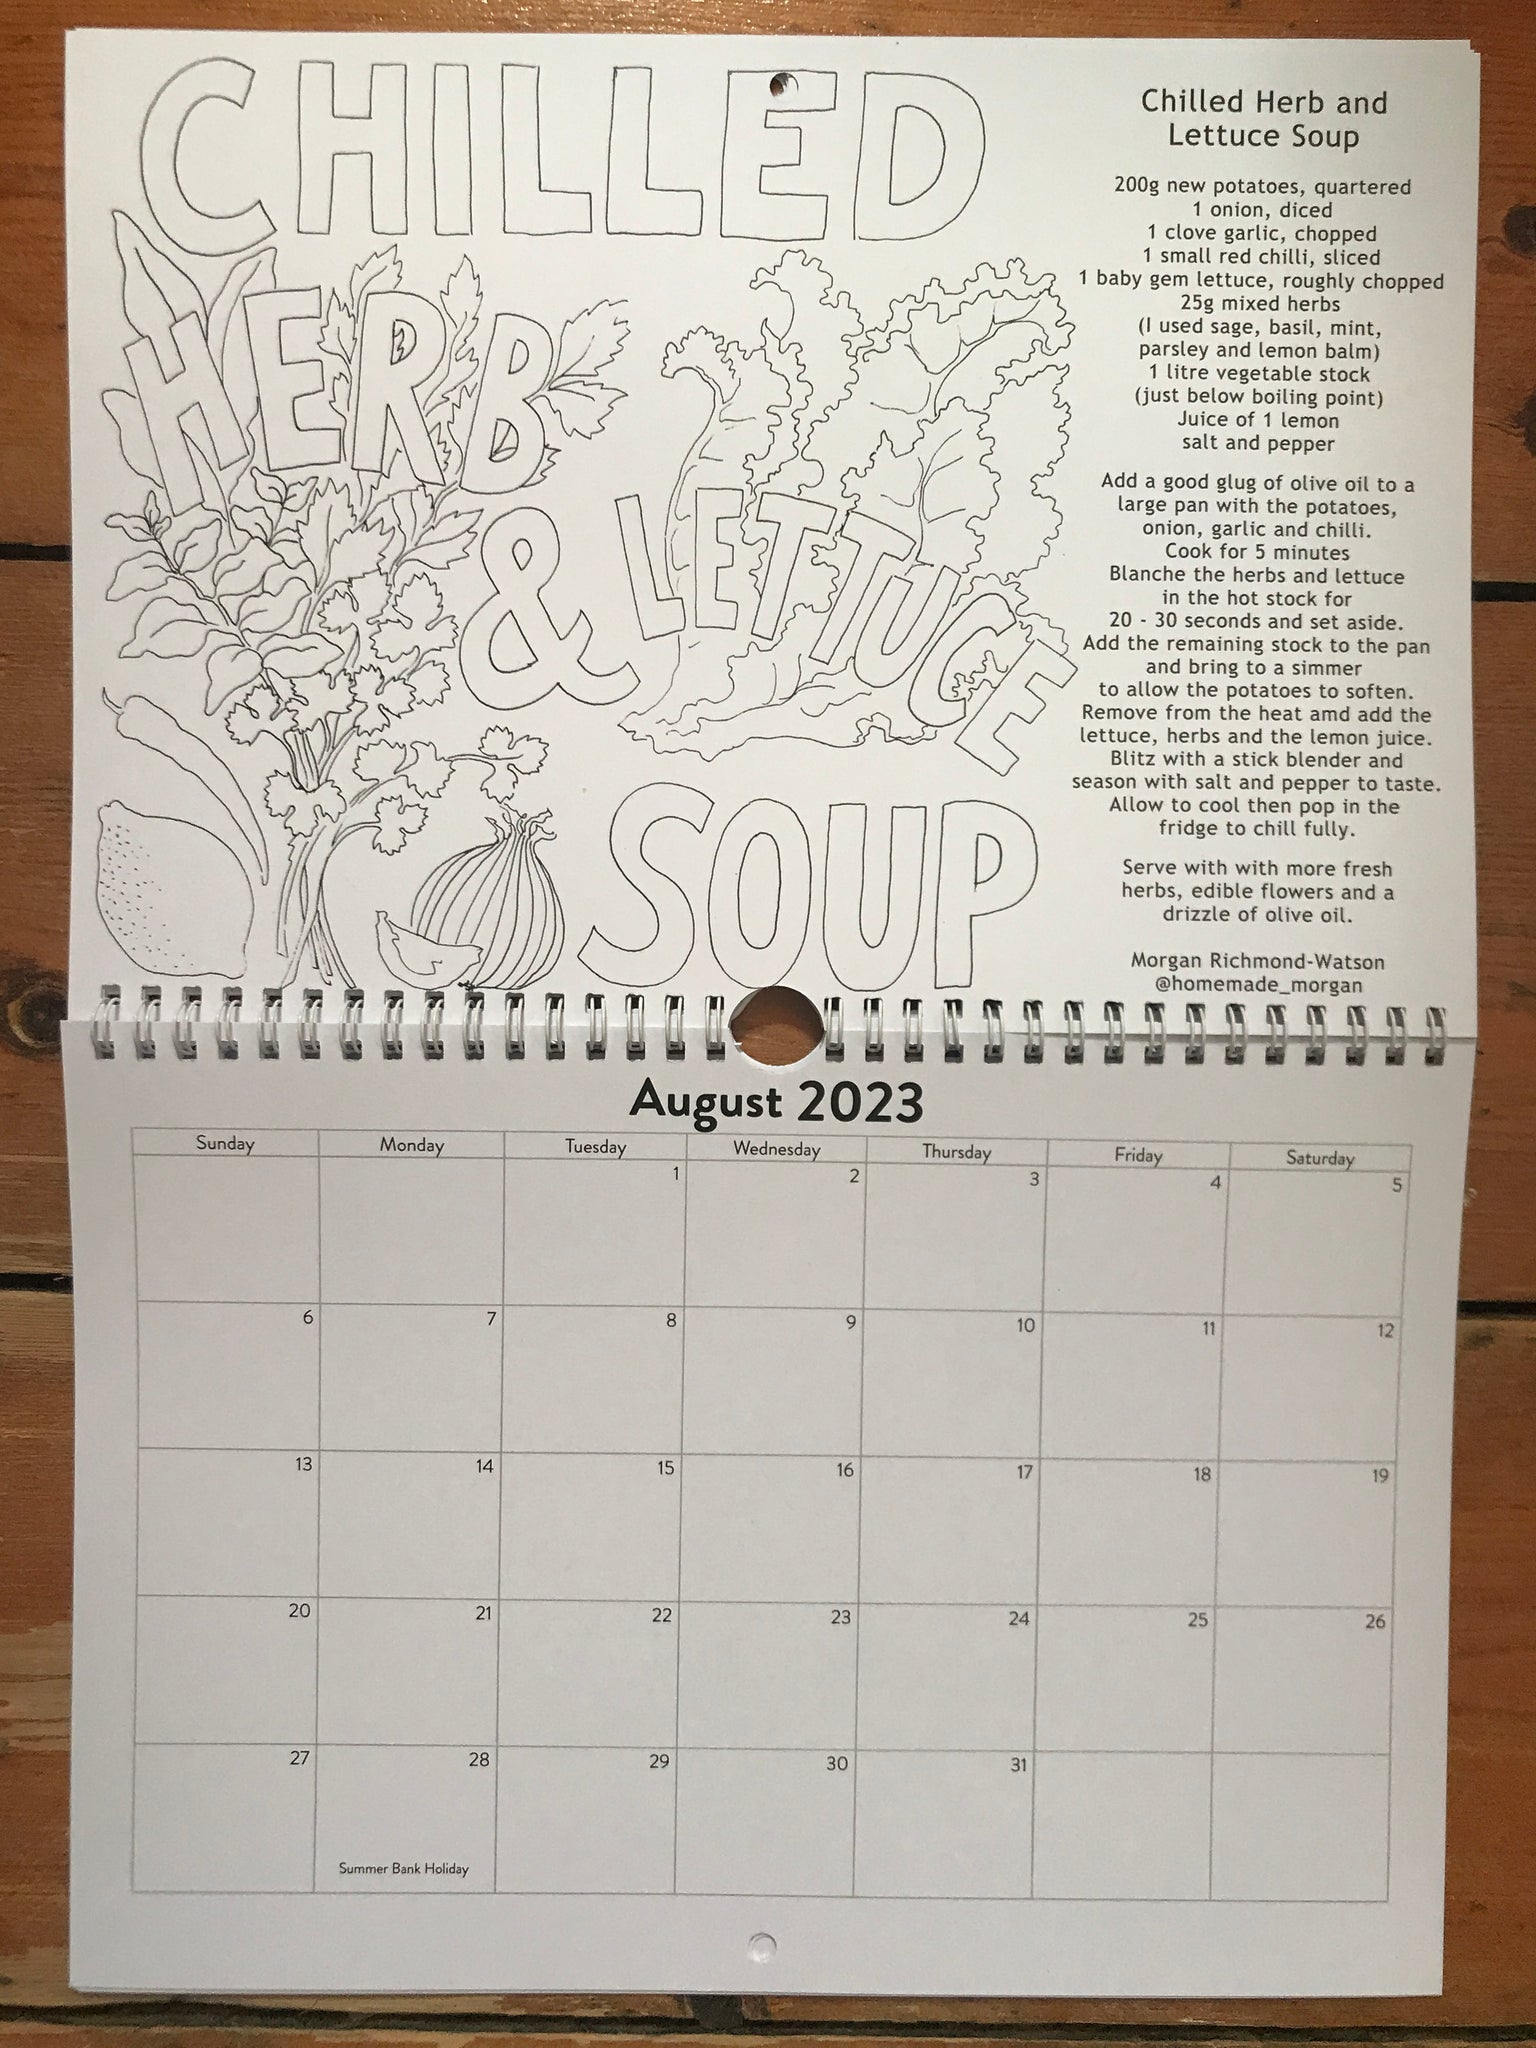 CHILLED
HERB
& LETTUCE
SOUP
Chilled Herb and
Lettuce Soup
200g new potatoes, quartered
1 onion, diced
1 clove garlic, chopped
1 small red chilli, sliced
1 baby gem lettuce, roughly chopped
25g mixed herbs
(I used sage, basil, mint,
parsley and lemon balm)
1 litre vegetable stock
(just below boiling point)
Juice of 1 lemon
salt and pepper
Add a good glug of olive oil to a
large pan with the potatoes,
onion, garlic and chilli.
Cook for 5 minutes
Blanche the herbs and lettuce
in the hot stock for
20 - 30 seconds and set aside.
Add the remaining stock to the pan
and bring to a simmer
to allow the potatoes to soften.
Remove from the heat amd add the
lettuce, herbs and the lemon juice.
Blitz with a stick blender and
season with salt and pepper to taste.
Allow to cool then pop in the
fridge to chill fully.
Serve with with more fresh
herbs, edible flowers and a
drizzle of olive oil.
Morgan Richmond-Watson
@homemade_morgan
August 2023
Sunday Monday Tuesday Wednesday Thursday Friday Saturday
1 2 3 4 5
6 7 8 9 10 11 12
13 14 15 16 17 18 19
20 21 22 23 24 25 26
27 28 29 30 31
Summer Bank Holiday